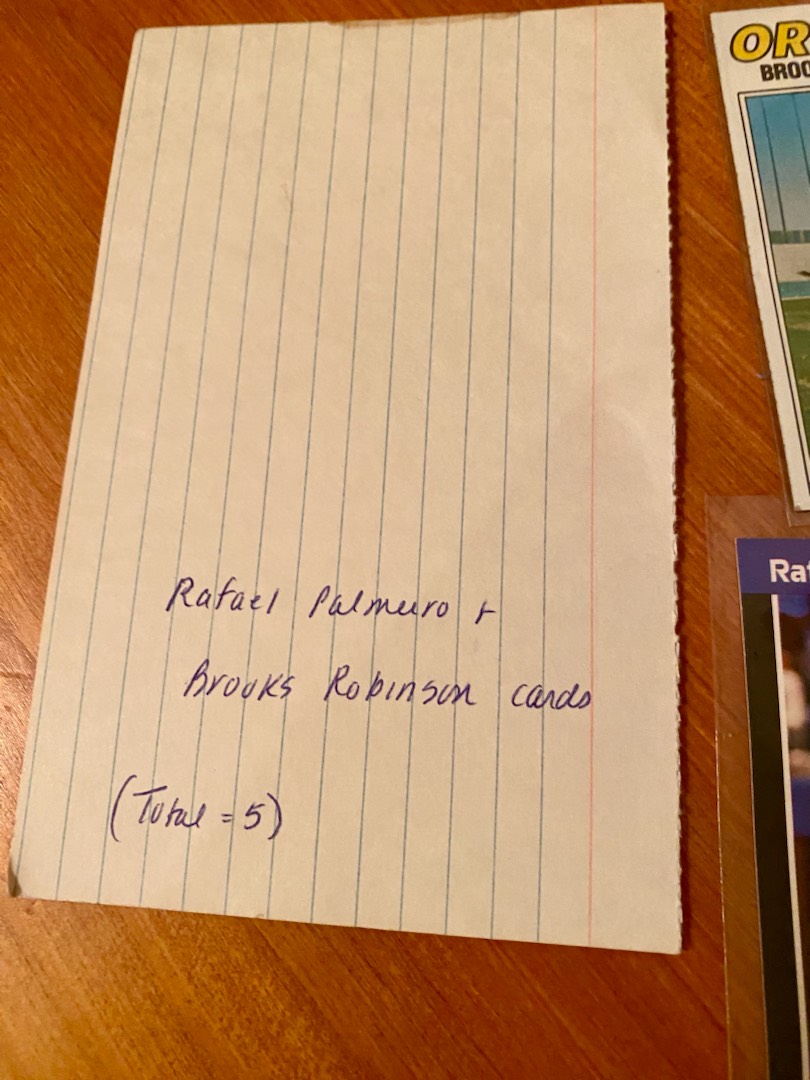 OR
BROO
Raf
Rafael Palmuro +
Brooks Robinson cards
(Total = 5)